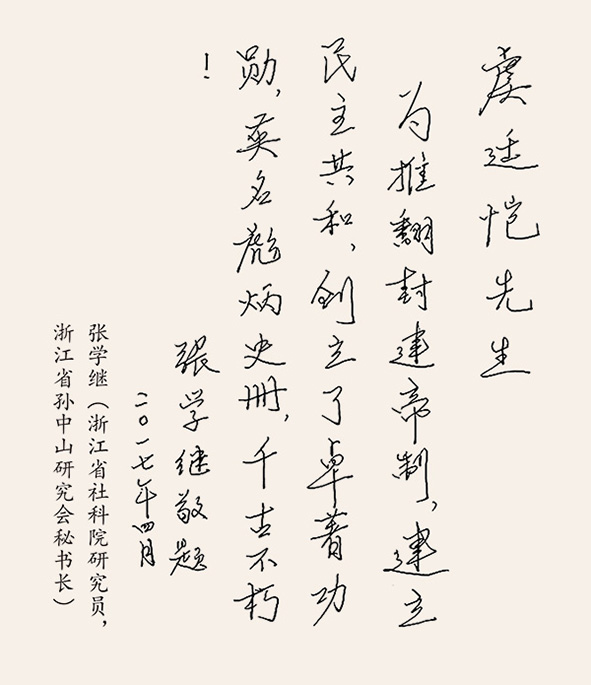 虞廷恺先生
为推翻封建帝制，建立
民主共和，创立了卓著功
勋，英名彪炳史册，千古不朽
！
张学继敬题
二〇一七年四月
张学继（浙江省社科院研究员，
浙江省孙中山研究会秘书长）